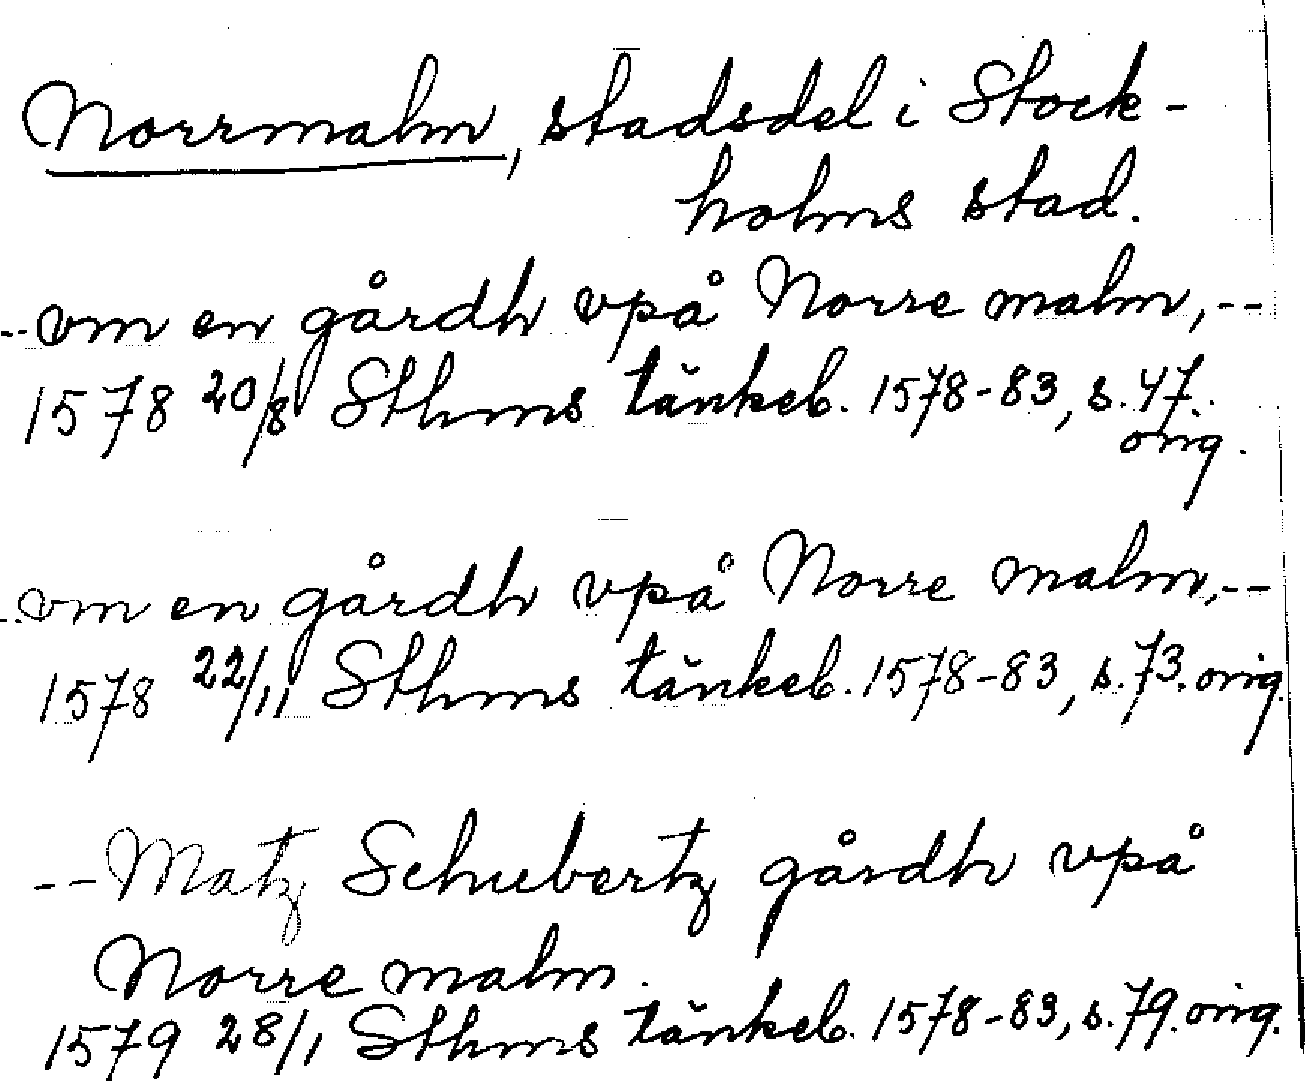 Norrmalm, stadsdel i Stock-
holms stad.
--vm en gårdh vpå Norre malm,--
1578 20/8 Sthms tänkeb. 1578-83, s. 47.
orig.
--vm en gårdh vpå Norre malm,--
1578 22/11 Sthms tänkeb. 1578-83, s. 73. orig.
--Matz Schubertz gårdh vpå
Norre malm.
1579 28/1 Sthms tänkeb. 1578-83, s. 79. orig.